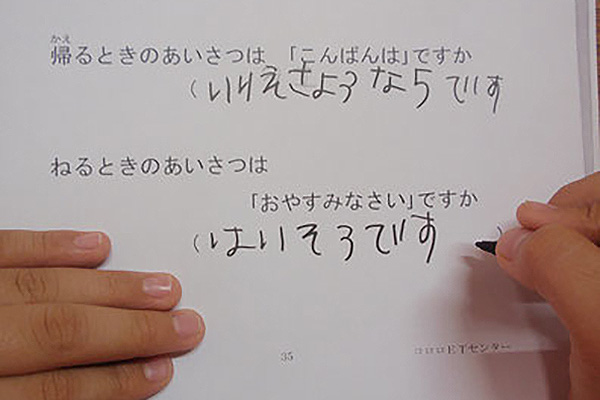 かえ
帰るときのあいさつは 「こんばんは」ですか
(いいえさようならです
ねるときのあいさつは
「おやすみなさい」ですか
(はいそうです )
35
ロロロETセンター